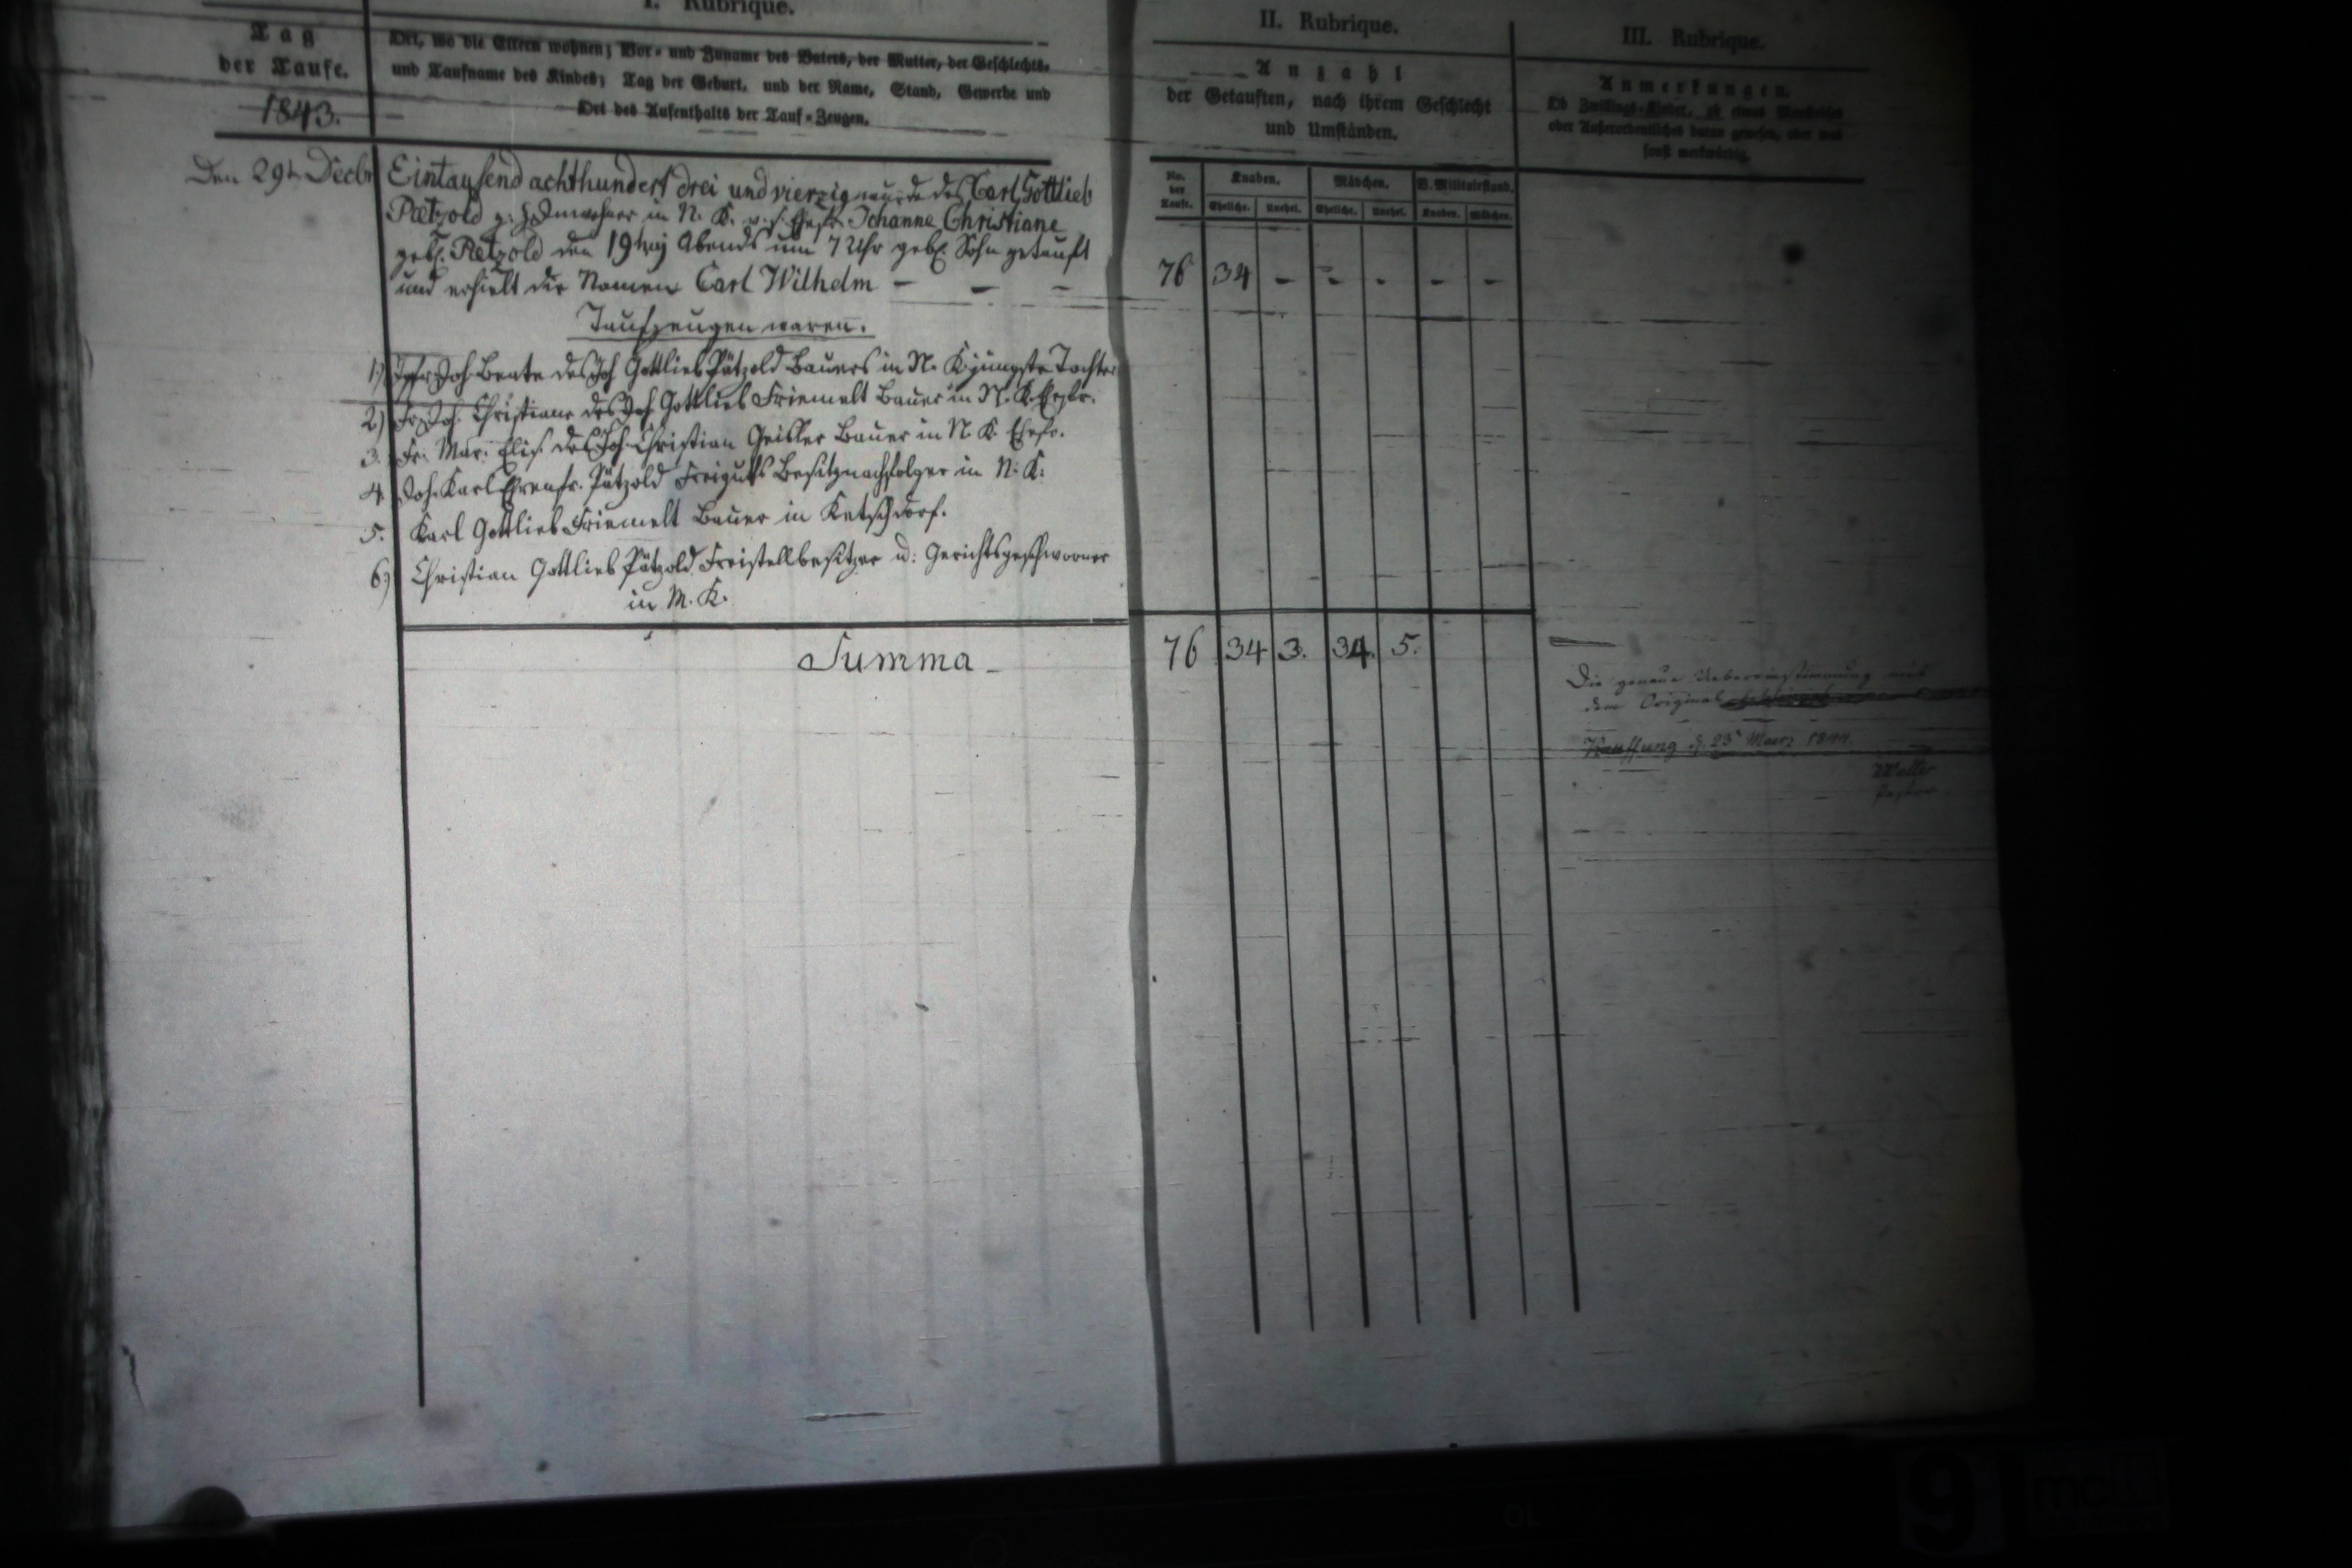 I. Rubrique.
II. Rubrique.
III. Rubrique.
Tag
der Taufe.
1843.
Ort, wo die Eltern wohnen; Vor- und Zuname des Vaters, der Mutter, der Geschlechts-
und Taufname des Kindes; Tag der Geburt, und der Name, Stand, Gewerbe und
Ort des Aufenthalts der Tauf-Zeugen.
Anzahl
der Getauften, nach ihrem Geschlecht
und Umständen.
Anmerkungen.
Ob Zwillings-Kinder, ob etwas
oder Außerordentliches daran gewesen, oder was
sonst merkwürdig.
No. der Taufe.
Knaben. Mädchen. V. Militairstand.
Eheliche. Unehel. Eheliche. Unehel. Knaben. Mädchen.
Den 29t Decbr
Eintausend achthundert drei und vierzig wurde des Carl Gottlieb
Pætzold Inwohner in N. K. u. s. Ehefr. Johanne Christiane
geb. Pætzold den 19t Abends um 7 Uhr geb. Sohn getauft
und erhielt die Namen Carl Wilhelm - - -
76 34 - - - - -
Taufzeugen waren.
1) Joh. Beate des Joh Gottlieb Pätzold Bauers in N. K. jüngste Tochter
2) Fr. Joh. Christiane des Joh. Gottlieb Friemelt Bauer in N. K. Ehefr.
3. Fr. Mar. Elis. des Joh. Christian Geisler Bauer in N. K. Ehefr.
4. Joh. Karl Ehrenfr. Pätzold Freiguts Besitznachfolger in N. K.
5. Karl Gottlieb Friemelt Bauer in Ketschdorf.
6) Christian Gottlieb Pätzold Freistellbesitzer u. Gerichtsgeschworner
in M. K.
Summa -
76 34 3. 34. 5.
Die genaue Uebereinstimmung mit
dem Original
Kauffung d. 23t Maerz 1844.
Pastor